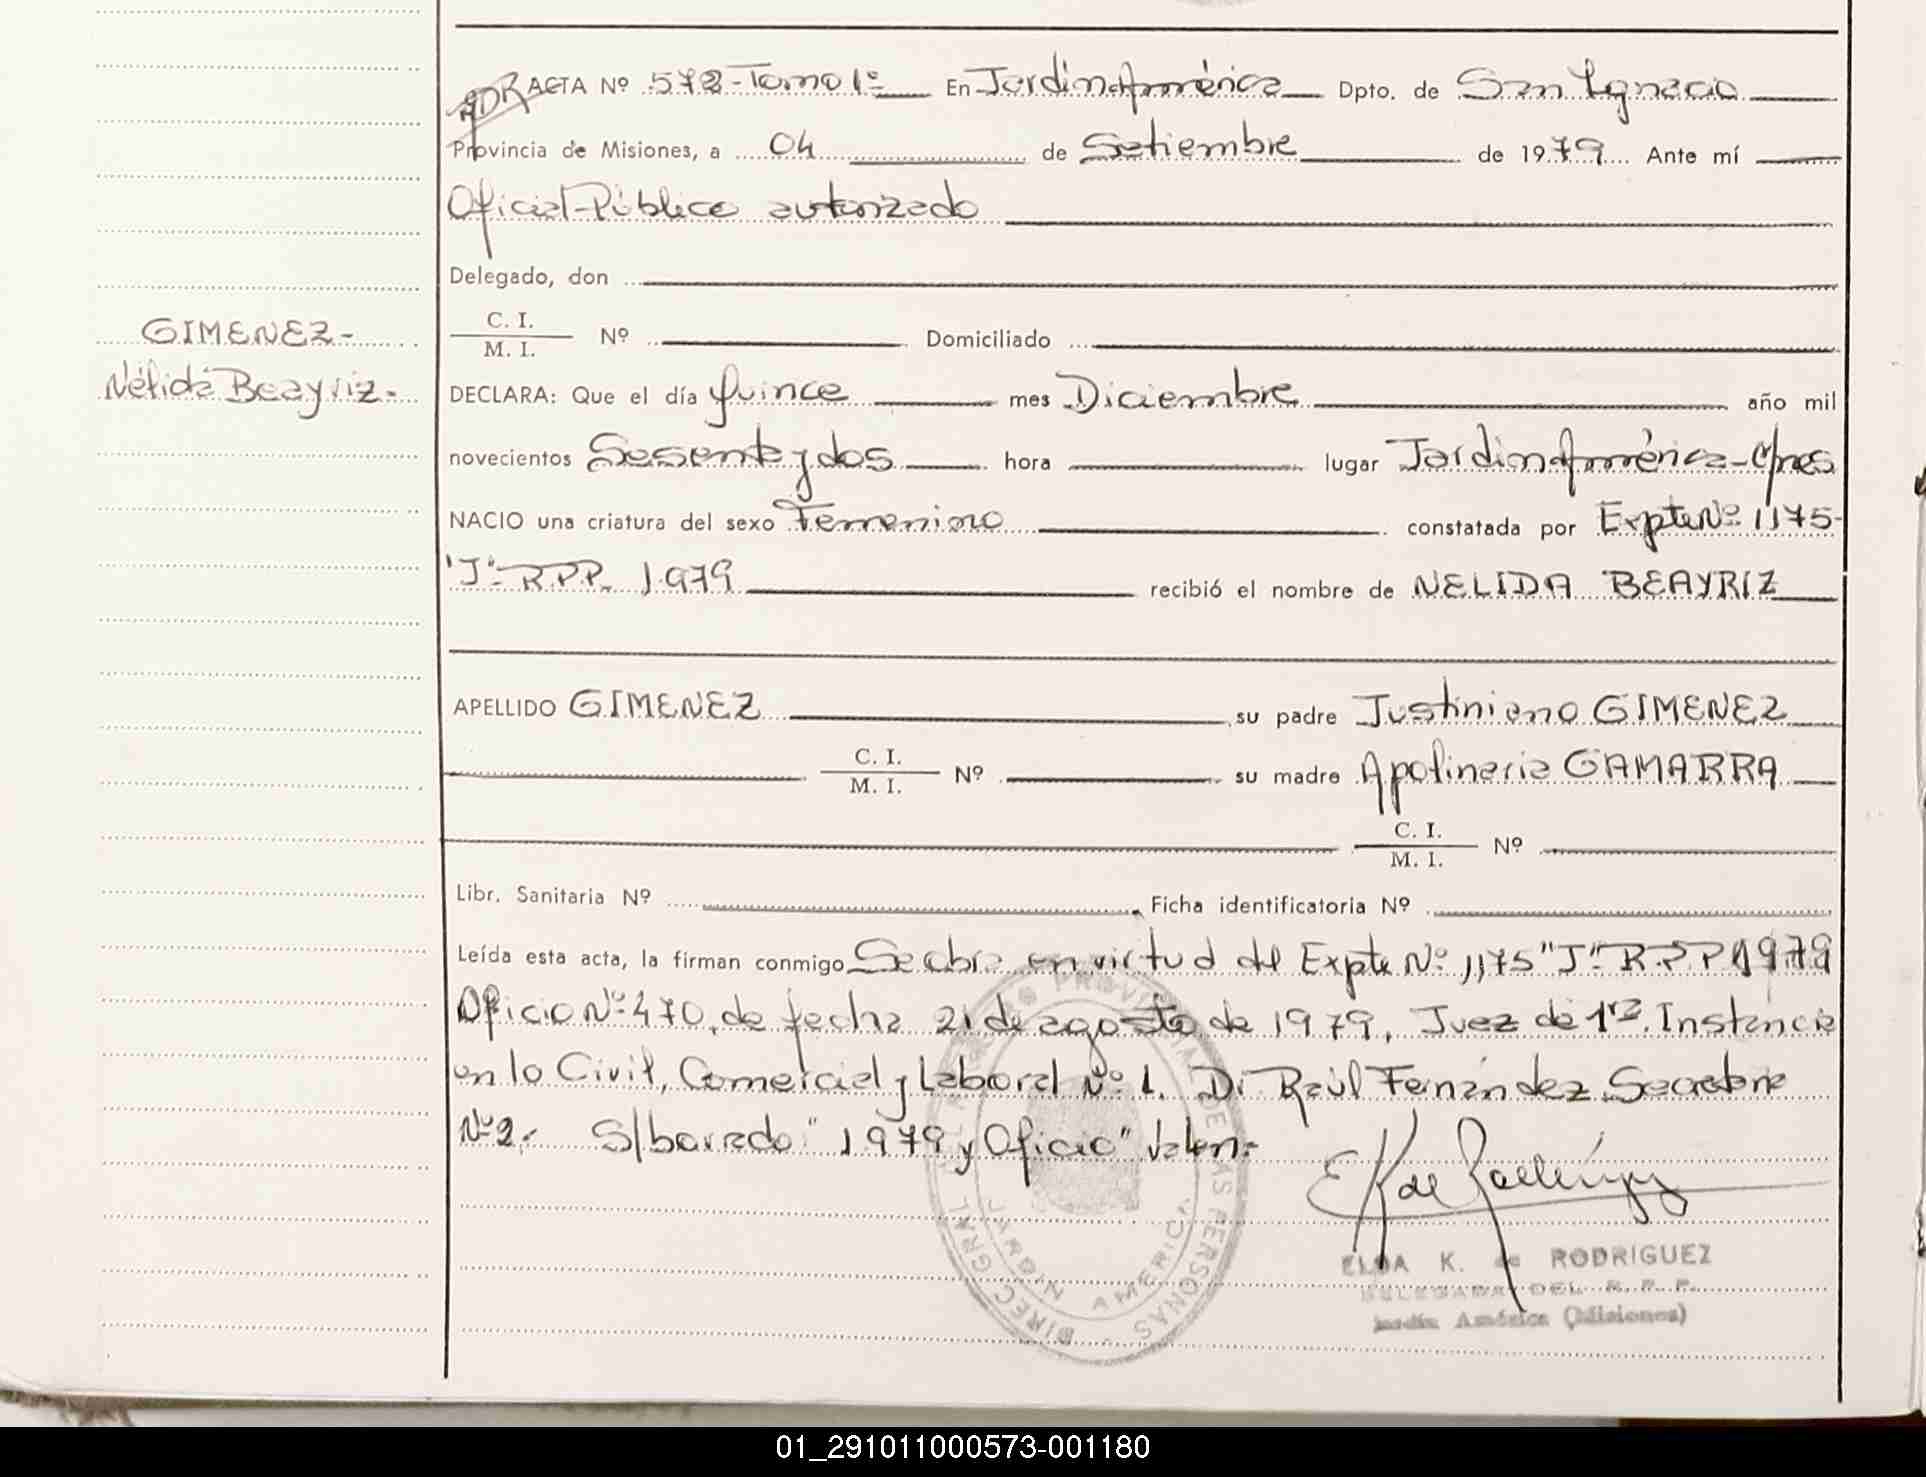 ACTA Nº 572-Tomo 1º En Jardin América Dpto. de San Ignacio
Provincia de Misiones, a 04 de Setiembre de 1979 Ante mí
Oficial Público autorizado
Delegado, don
GIMENEZ-
Nélida Beayriz-
C. I.
M. I. Nº Domiciliado
DECLARA: Que el día quince mes Diciembre año mil
novecientos Sesenta y dos hora lugar Jardin América-Mnes
NACIO una criatura del sexo Femenino constatada por Expte Nº 1175-
"J"-R.P.P. 1979 recibió el nombre de NELIDA BEAYRIZ
APELLIDO GIMENEZ su padre Justiniano GIMENEZ
C. I.
M. I. Nº su madre Apolinaria GAMARRA
C. I.
M. I. Nº
Libr. Sanitaria Nº Ficha identificatoria Nº
Leída esta acta, la firman conmigo Se abre en virtud del Expte Nº 1175 "J" R.P.P 1979
Oficio Nº 470, de fecha 21 de agosto de 1979, Juez de 1ra. Instancia
en lo Civil, Comercial y Laboral Nº 1. Dr Raúl Fernández Secretaria
Nº 2.- S/borrado "1979 y Oficio" Valen.-
DIREC. GRAL. PROVINCIAL DE LAS PERSONAS
JARDIN AMERICA
ELSA K. de RODRIGUEZ
DELEGADA DEL R. P. P.
Jardín América (Misiones)
01_291011000573-001180